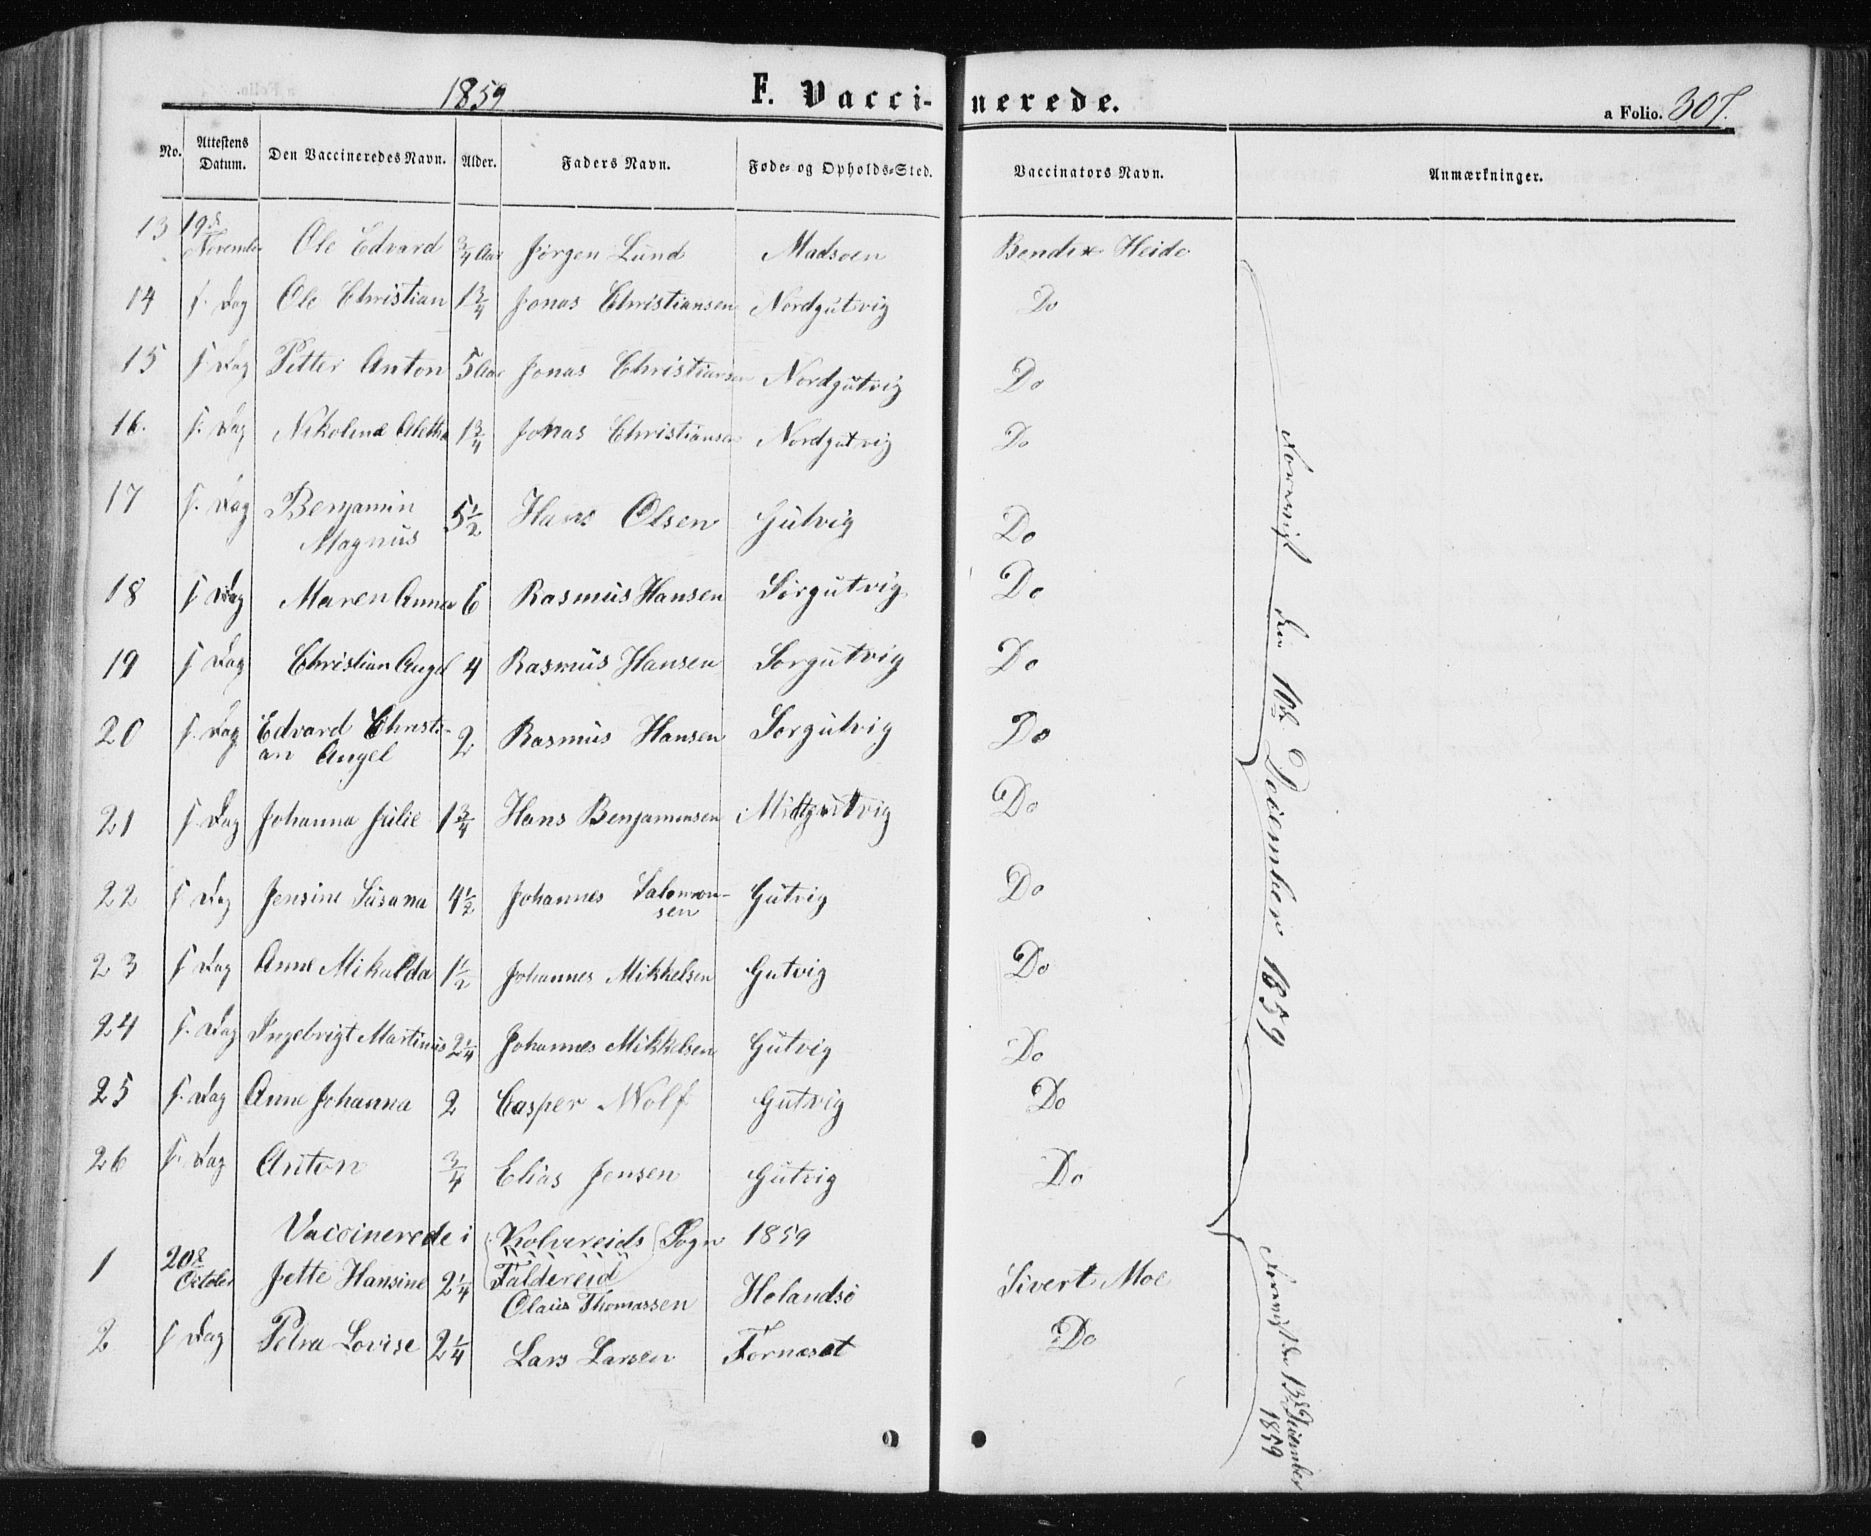 1859 F. Vaccinerede. a Folio. 307.
No. Attestens Datum. Den Vaccineredes Navn. Alder. Faders Navn. Føde- og Opholds-Sted. Vaccinators Navn. Anmærkninger.
13 19de November Ole Edvard 3/4 Aar Jørgen Lund Madsoen Bendix Heide
14 s. Dag Ole Christian 1 3/4 Jonas Christiansen Nordgutvig Do
15 s Dag Petter Anton 5 Aar Jonas Christiansen Nordgutvig Do
16. s. Dag Nikoline Aletha 1 3/4 Jonas Christiansen Nordgutvig Do
17 s. Dag Benjamin Magnus 5 1/2 Hans Olsen Gutvig Do
18 s Dag Maren Anna 6 Rasmus Hansen Sørgutvig Do
19 s Dag Christian Angel 4 Rasmus Hansen Sørgutvig Do
20 s. Dag Edvard Christi-
an Angel 2 Rasmus Hansen Sørgutvig Do
21 s. Dag Johanna Julie 1 3/4 Hans Benjaminsen Midtgutvig Do
22 s Dag Jensine Susana 4 1/2 Johannes Salomon-
sen Gutvig Do
23 s Dag Anne Mikalda 1 1/2 Johannes Mikkelsen Gutvig Do
24 s. Dag Ingebrigt Martinus 2 1/4 Johannes Mikkelsen Gutvig Do
25 s. Dag Anne Johanna 2 Casper Wolf Gutvig Do
26 s. Dag Anton 3/4 Elias Jensen Gutvig Do
den 10de December 1859
Vaccinerede i Kolvereids Sogn 1859
Faldereid
1 20de October Jette Hansine 2 1/4 Olaus Thomassen Holandsø Sivert Moe
2 s Dag Petra Lovise 2 1/4 Lars Larsen Fornæset Do
den 13de December
1859